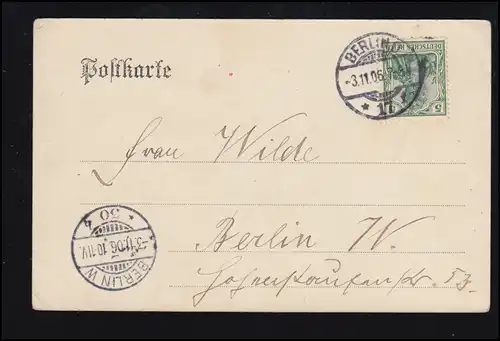 BERLIN
-3.11.06
* 17 *
DEUTSCHES REICH
5
Postkarte
Frau Wilde
Berlin W.
Hohenstaufenstr. 53
BERLIN W
-3.11.06.10-11V.
* 50 *